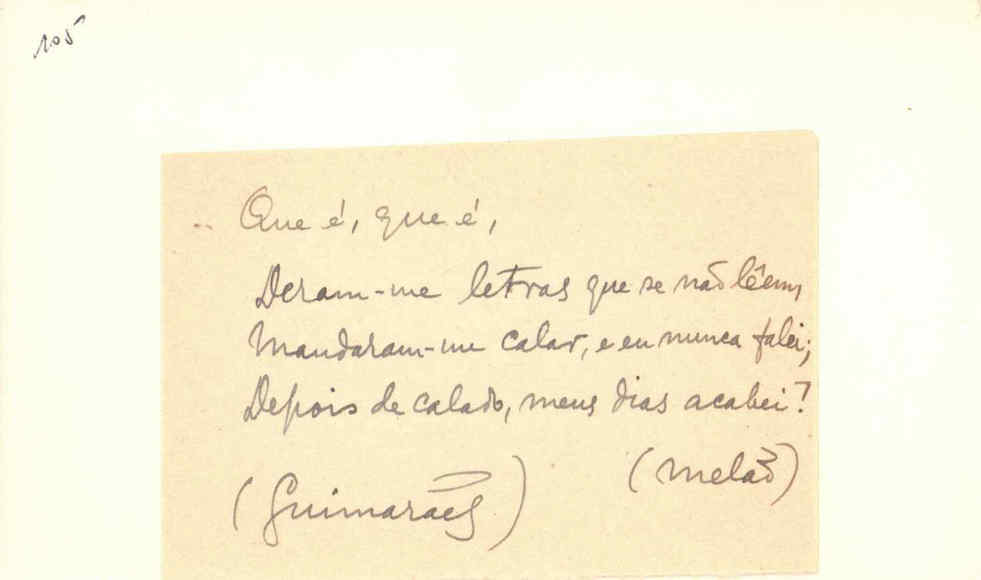 105
Que é, que é,
Deram-me letras que se não lêem,
Mandaram-me calar, e eu nunca falei;
Depois de calado, meus dias acabei?
(melão)
(Guimarães)